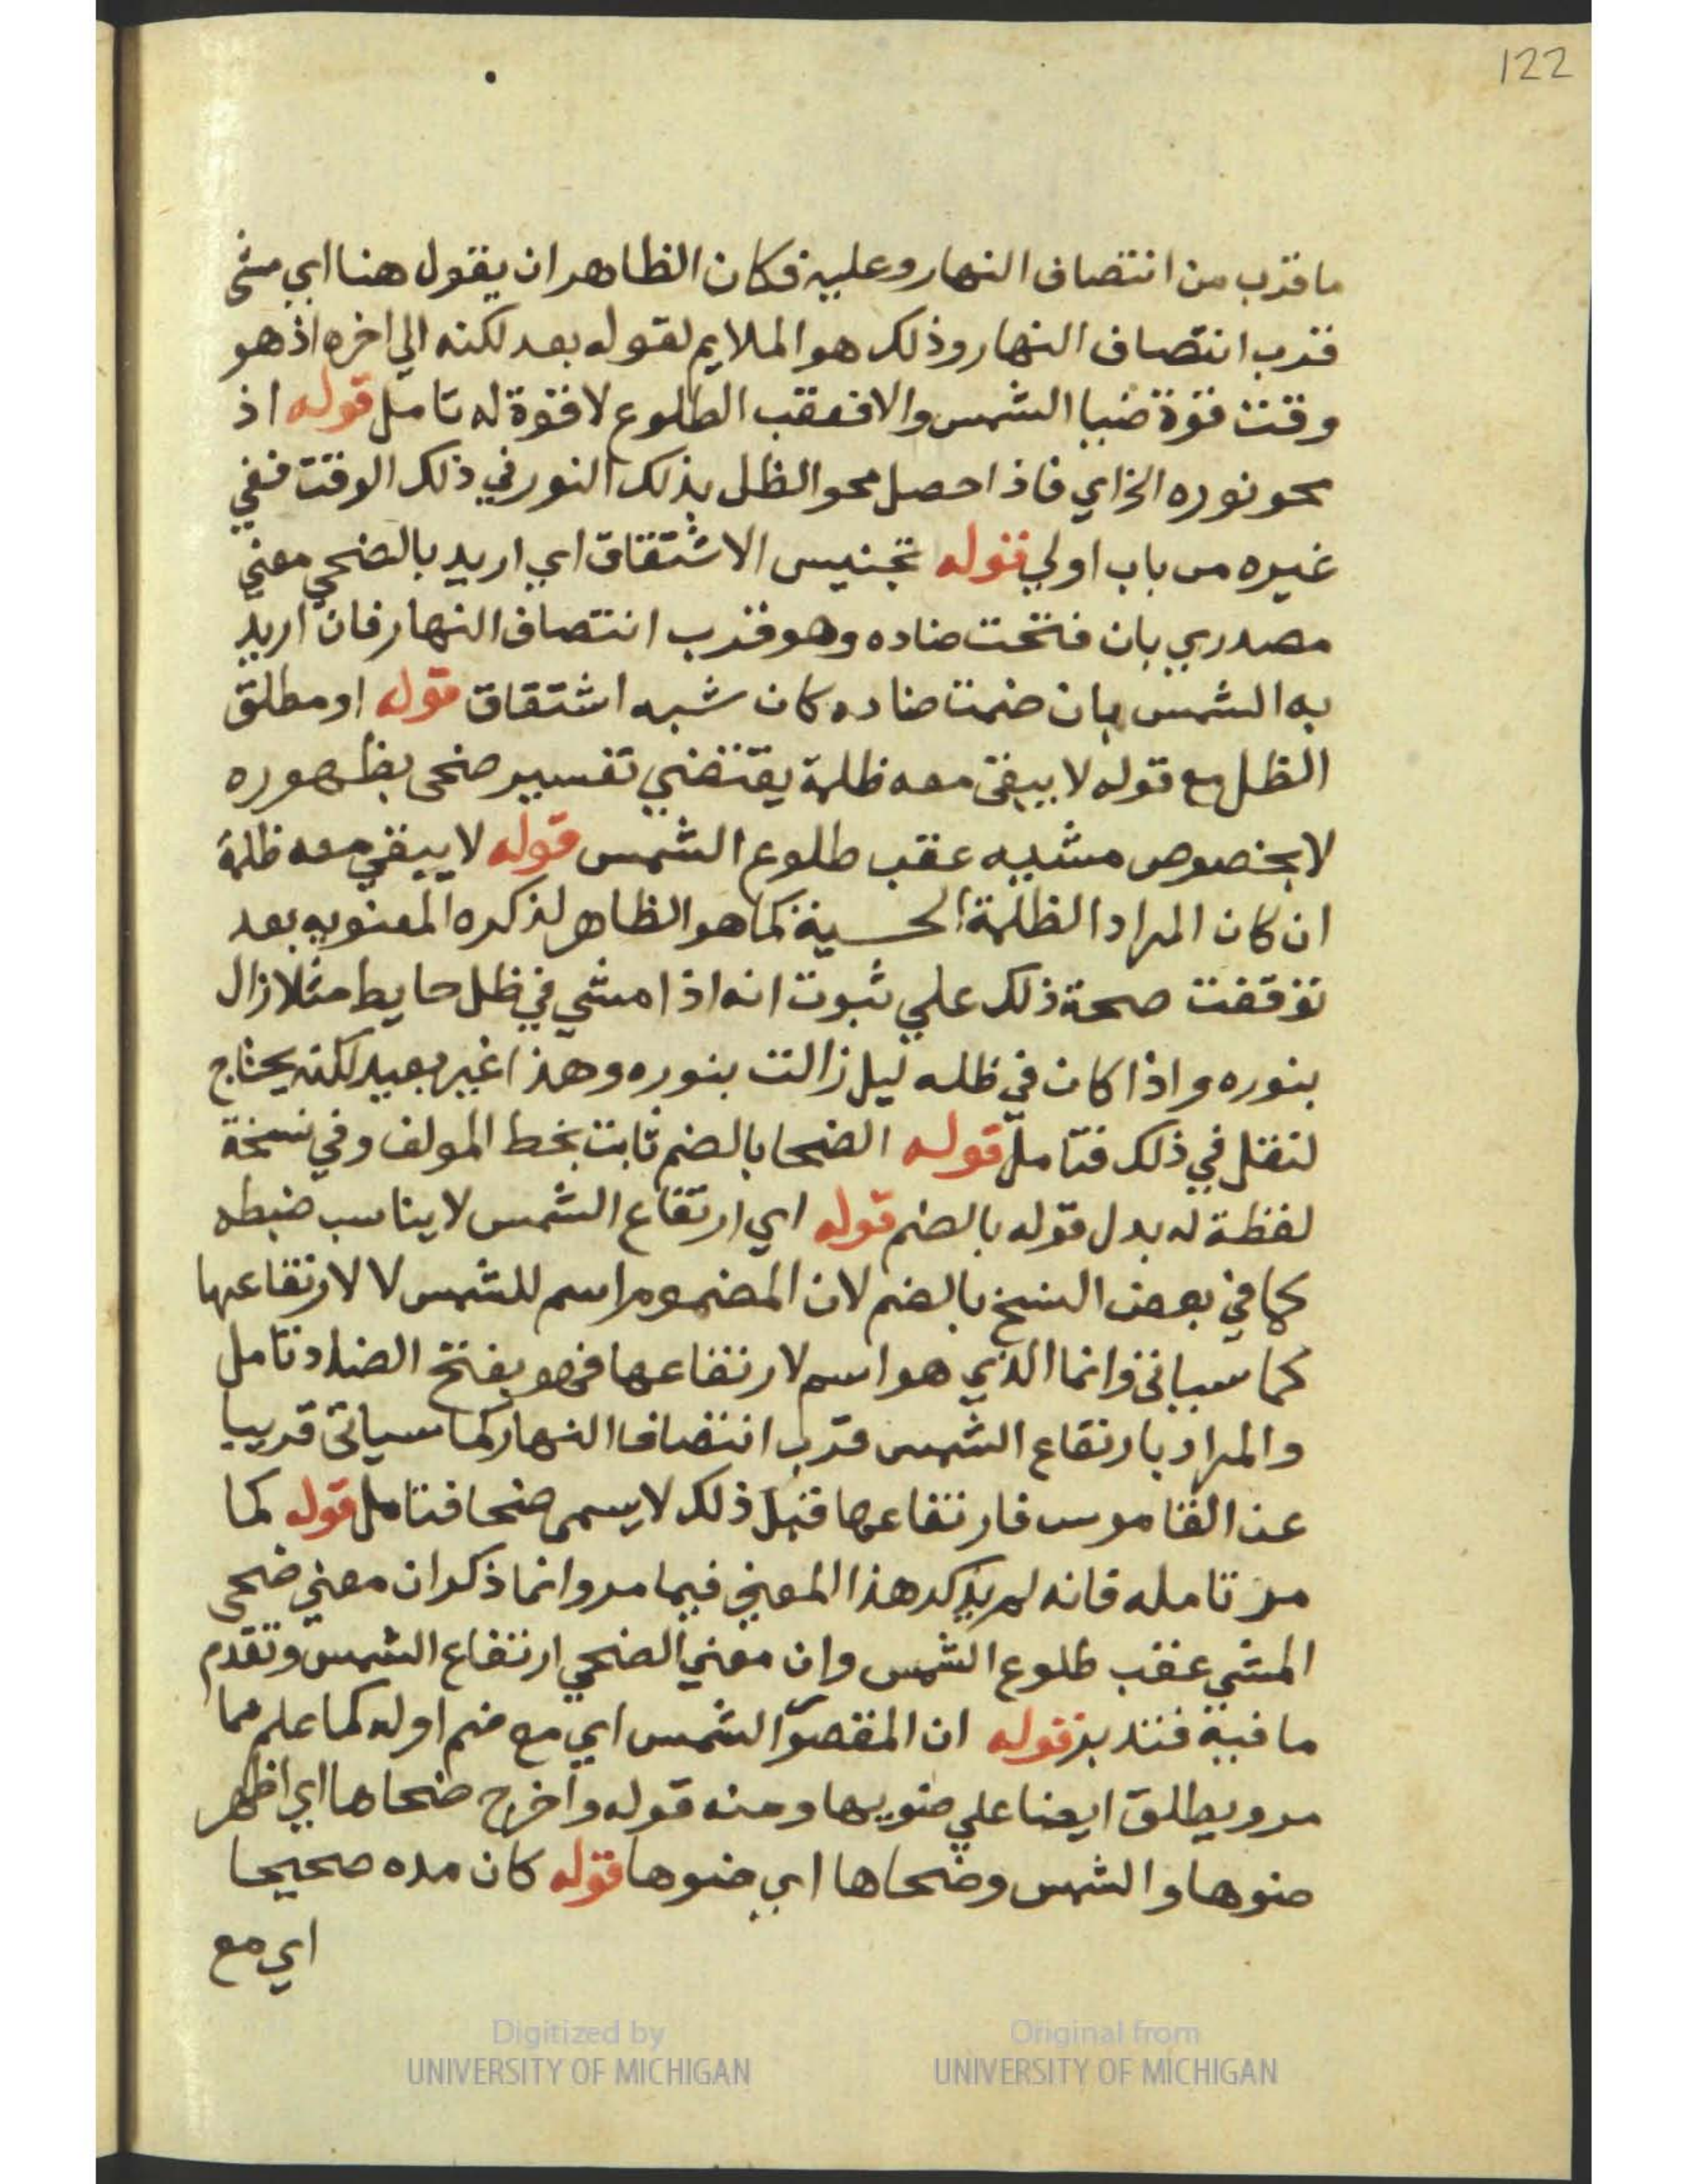 122
ما قرب من انتصاف النهار وعليه فكان الظاهر ان يقول هنا اي مشى
قرب انتصاف النهار وذلك هو الملايم لقوله بعد لكنه الي اخره اذ هو
وقت قوة ضيا الشمس والا فعقب الطلوع لا قوة له تامل قوله اذ
محو نوره الخ اي فاذا حصل محو الظل بذلك النور في ذلك الوقت ففي
غيره من باب اولي قوله تجنيس الاشتقاق اي اريد بالضحي معني
مصدري بان فتحت ضاده وهو قرب انتصاف النهار فان اريد
به الشمس بان ضمت ضاده كان شبه اشتقاق قوله او مطلق
الظل مع قوله لا يبقي معه ظلمة يقتضي تفسير ضحى بظهوره
لا بخصوص مشيه عقب طلوع الشمس قوله لا يبقي معه ظلمة
ان كان المراد الظلمة الحسية كما هو الظاهر لذكره المعنويه بعد
توقفت صحة ذلك علي ثبوت انه اذا مشي في ظل حايط مثلا زال
بنوره واذا كان في ظله ليل زالت بنوره وهذا غير بعيد لكنه يحتاج
لنقل في ذلك فتامل قوله الضحا بالضم ثابت بخط المولف وفي نسخة
لفظة له بدل قوله بالضم قوله اي ارتفاع الشمس لا يناسب ضبطه
كما في بعض النسخ بالضم لان المضموم اسم للشمس لا لارتفاعها
كما سياتى وانما الذي هو اسم لارتفاعها فهو بفتح الضاد تامل
والمراد بارتفاع الشمس قرب انتصاف النهار كما سياتى قريبا
عن القاموس فارتفاعها قبل ذلك لا يسمى ضحا فتامل قوله كما
مر تامله فانه لم يذكر هذا المعني فيما مر وانما ذكر ان معني ضحى
المشي عقب طلوع الشمس وان معني الضحي ارتفاع الشمس وتقدم
ما فيه فتدبر قوله ان المقصور الشمس اي مع ضم اوله كما علم مما
مر ويطلق ايضا علي ضويها ومنه قوله واخرج ضحاها اي اظهر
ضوها والشمس وضحاها اي ضوها قوله كان مده صحيحا
اي مع
Digitized by
UNIVERSITY OF MICHIGAN
Original from
UNIVERSITY OF MICHIGAN